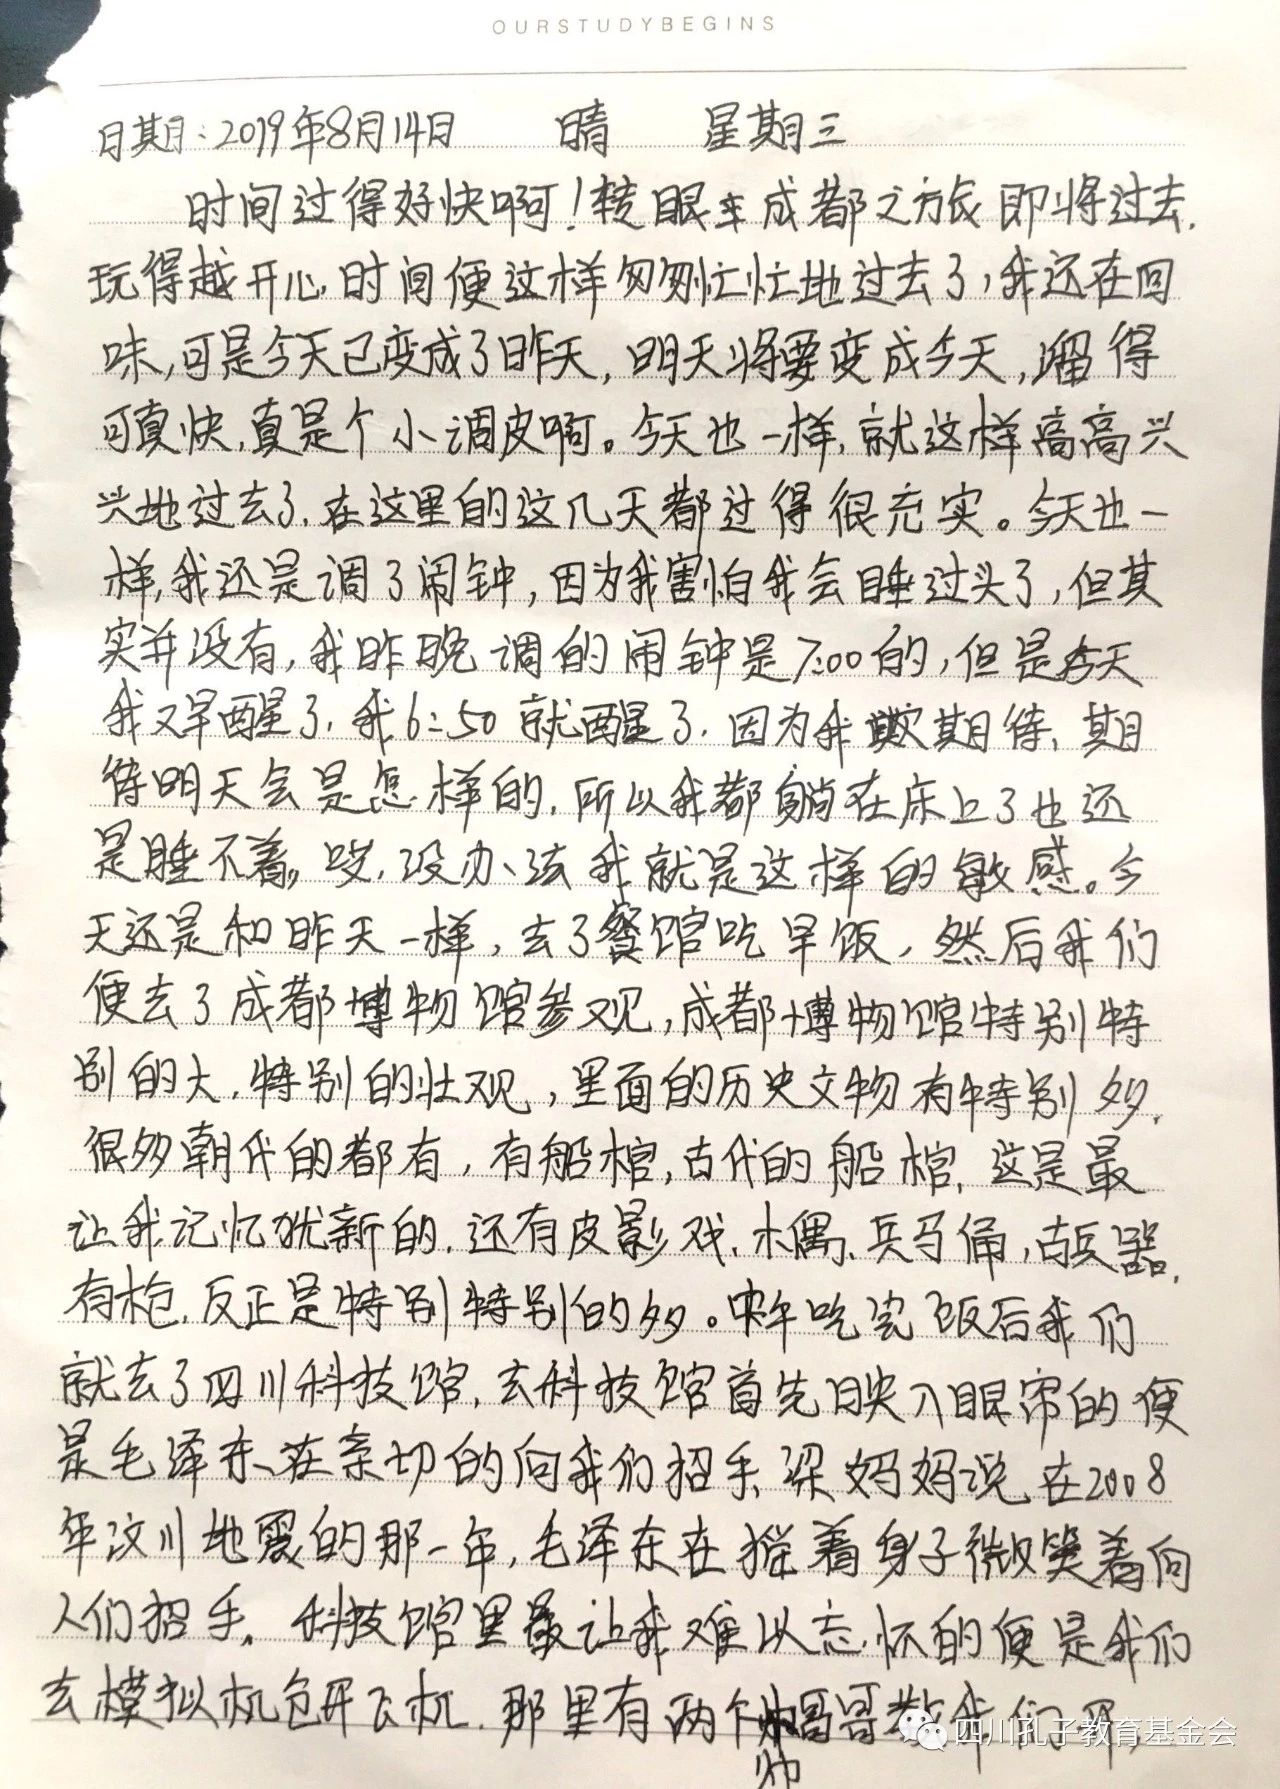 OURSTUDYBEGINS
日期:2019年8月14日 晴 星期三
时间过得好快啊!转眼间成都之旅即将过去.
玩得越开心,时间便这样匆匆忙忙地过去了,我还在回
味,可是今天已变成了昨天,明天将要变成今天,溜得
可真快,真是个小调皮啊。今天也一样,就这样高高兴
兴地过去了.在这里的这几天都过得很充实。今天也一
样,我还是调了闹钟,因为我害怕我会睡过头了,但其
实并没有,我昨晚调的闹钟是7:00的,但是今天
我又早醒了.我6:50就醒了.因为我期待、期
待明天会是怎样的.所以我都躺在床上了也还
是睡不着。哎.没办法我就是这样的敏感。今
天还是和昨天一样,去了餐馆吃早饭,然后我们
便去了成都博物馆参观,成都博物馆特别特
别的大.特别的壮观,里面的历史文物有特别多.
很多朝代的都有,有船棺,古代的船棺.这是最
让我记忆犹新的.还有皮影戏.木偶.兵马俑,古兵器.
有枪.反正是特别特别的多。中午吃完饭后我们
就去了四川科技馆,去科技馆首先映入眼帘的便
是毛泽东、在亲切的向我们招手、梁妈妈说在2008
年汶川地震的那一年,毛泽东在着身子微笑着向
人们招手。科技馆里最让我难以忘怀的便是我们
去模拟机仓开飞机.那里有两个帅哥哥教我们
帅
四川孔子教育基金会